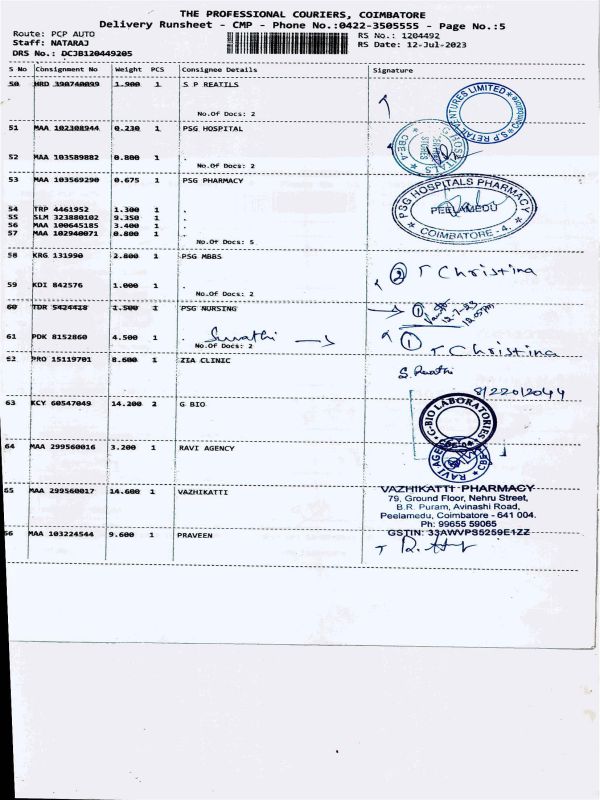 THE PROFESSIONAL COURIERS, COIMBATORE
Delivery Runsheet - CMP - Phone No.:0422-3505555 - Page No.:5
Route: PCP AUTO
Staff: NATARAJ
DRS No.: DCJB120449205
RS No.: 1204492
RS Date: 12-Jul-2023
S No Consignment No Weight PCS Consignee Details Signature
50 HRD 390740099 1.900 1 S P REATILS
No.Of Docs: 2
S.P RETAIL VENTURES LIMITED Coimbatore
51 MAA 102308944 0.230 1 PSG HOSPITAL
52 MAA 103589882 0.800 1 .
No.Of Docs: 2
53 MAA 103569290 0.675 1 PSG PHARMACY
PSG HOSPITALS PHARMACY
PEELAMEDU
COIMBATORE - 4.
54 TRP 4461952 1.300 1 .
55 SLM 323880102 9.350 1 .
56 MAA 100645185 3.400 1 .
57 MAA 102940071 0.800 1 .
No.Of Docs: 5
58 KRG 131990 2.800 1 PSG MBBS
2 T Christina
59 KDI 842576 1.000 1 .
No.Of Docs: 2
60 TDR 5424418 1.500 1 PSG NURSING
1 12-7-23
61 PDK 8152860 4.500 1 . Swathi
No.Of Docs: 2
1 T Christina
62 PRO 15119701 8.600 1 ZIA CLINIC
S. Revathi
8122012044
63 KCY 60547049 14.200 2 G BIO
G-BIO LABORATORIES
64 MAA 299560016 3.200 1 RAVI AGENCY
65 MAA 299560017 14.600 1 VAZHIKATTI
VAZHIKATTI PHARMACY
79, Ground Floor, Nehru Street,
B.R. Puram, Avinashi Road,
Peelamedu, Coimbatore - 641 004.
Ph: 99655 59065
GSTIN: 33AWVPS5259E1ZZ
66 MAA 103224544 9.600 1 PRAVEEN